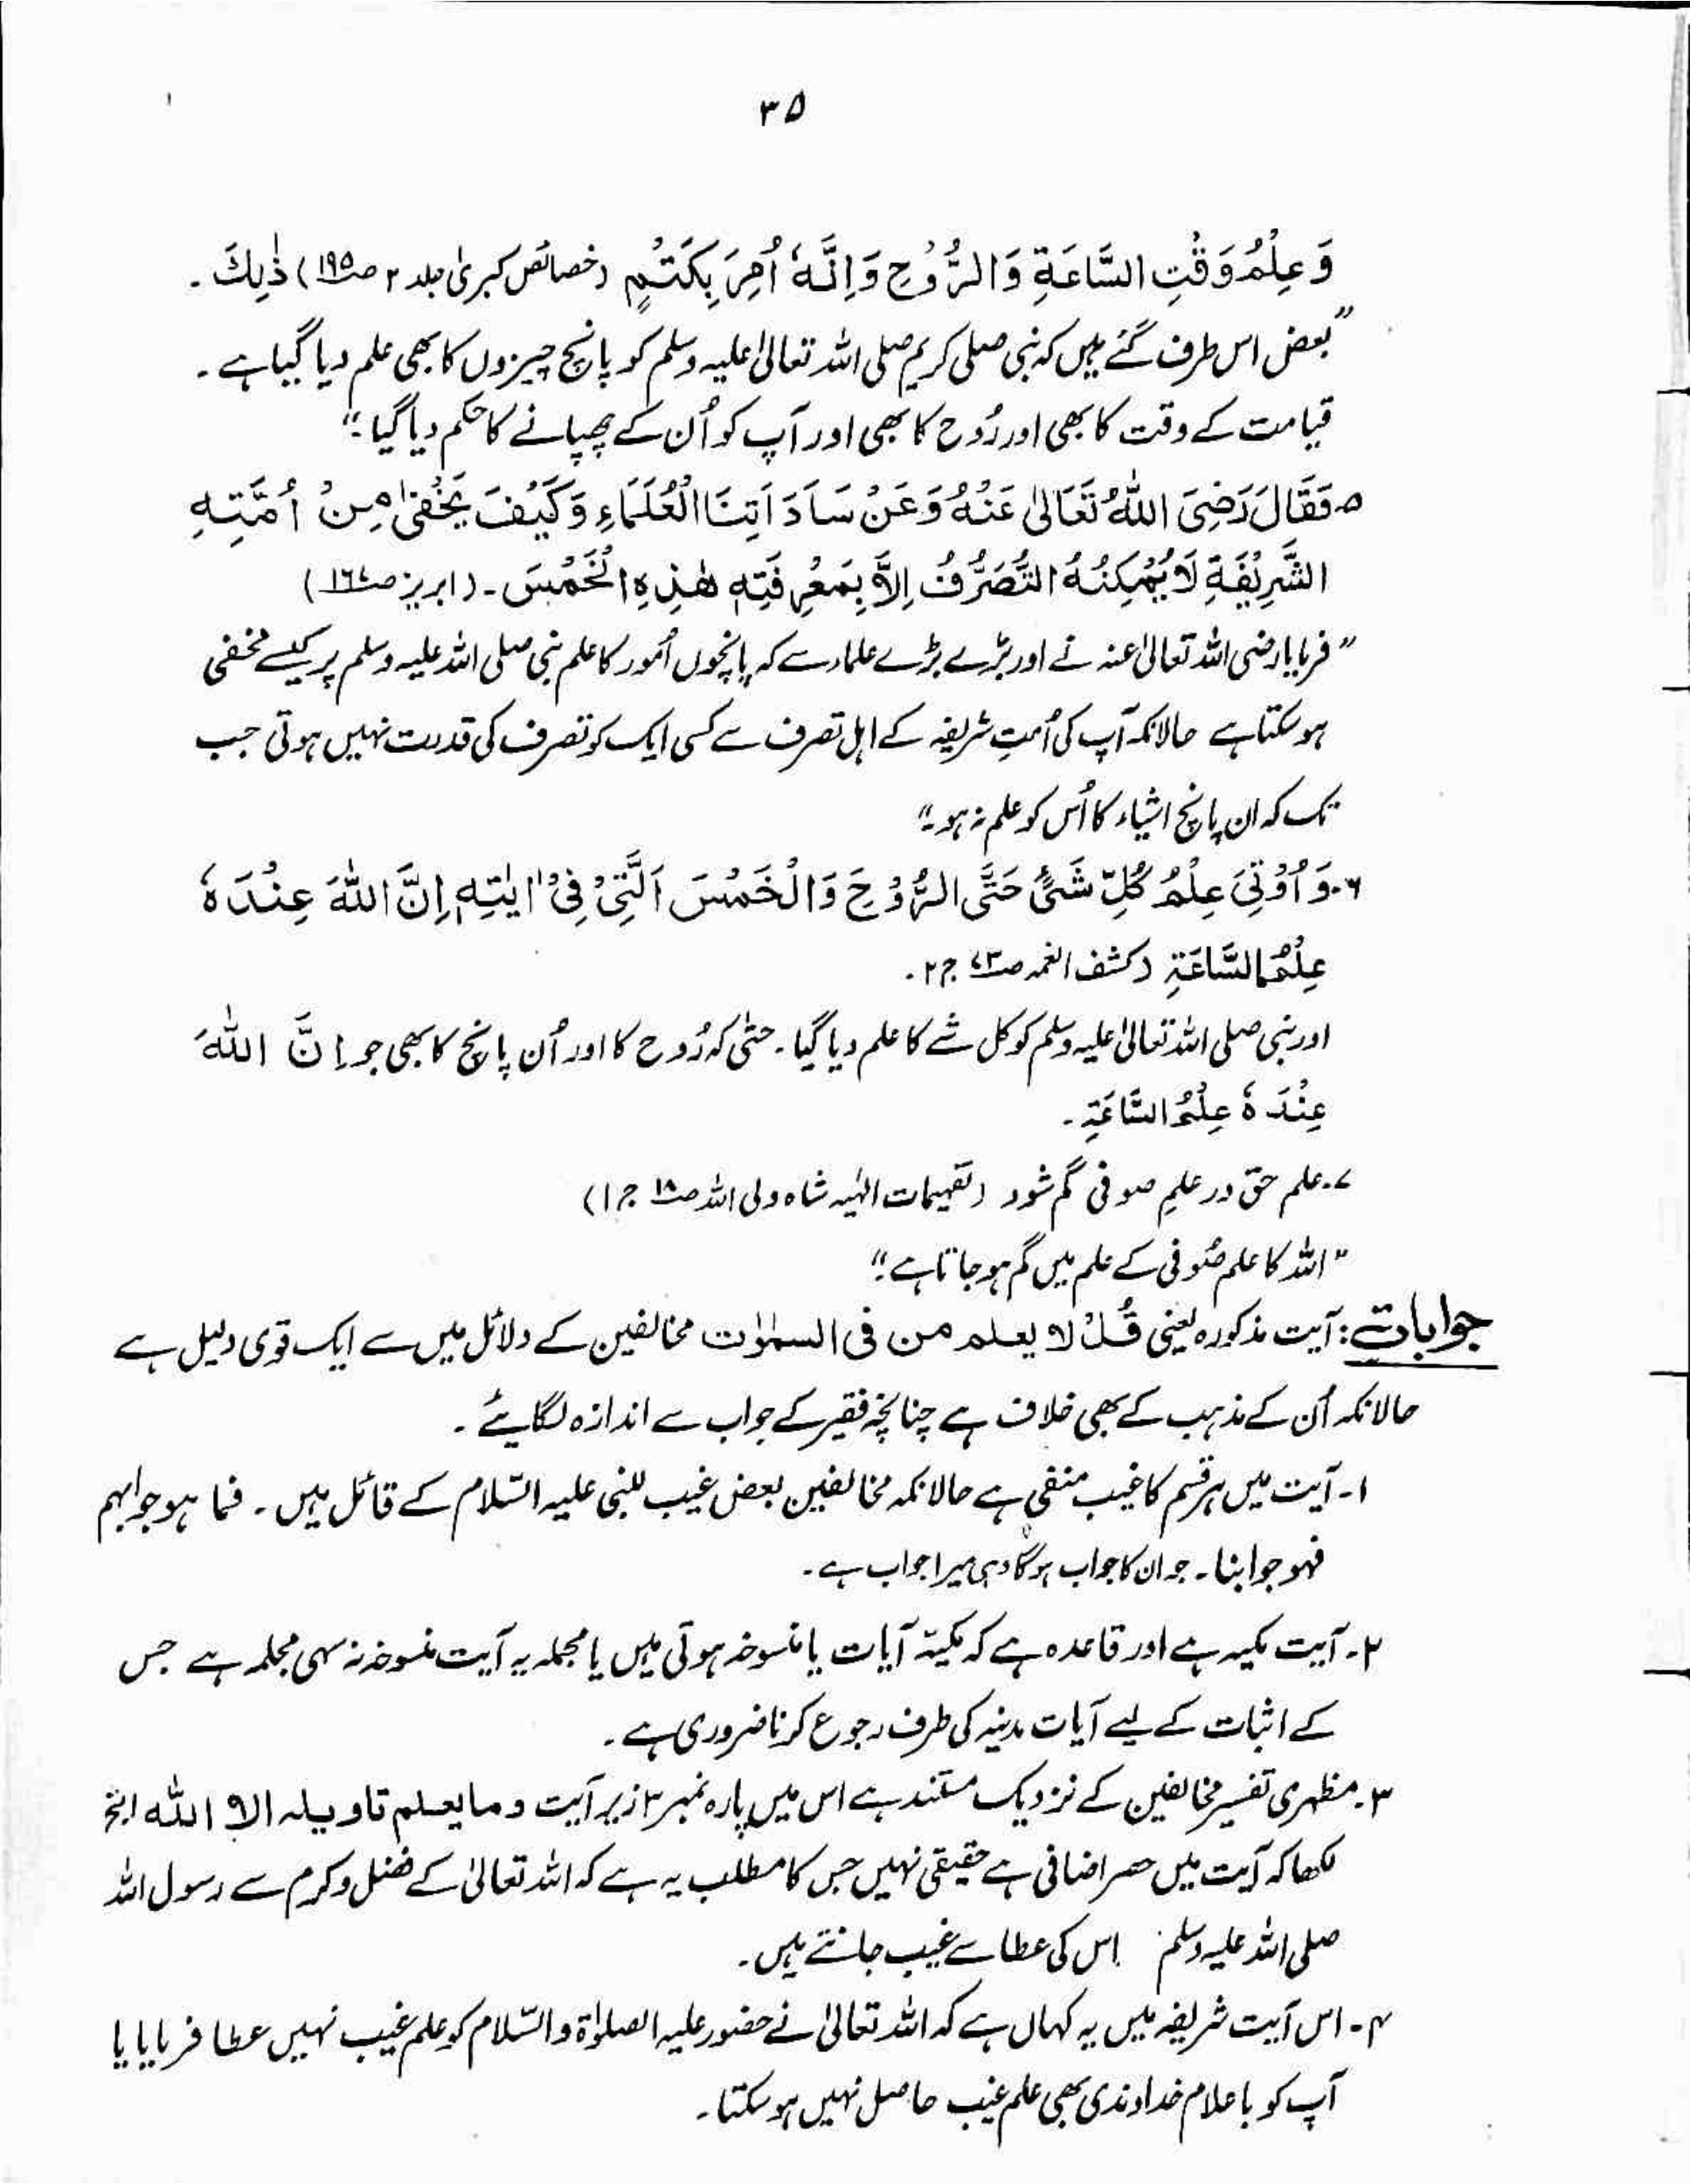 ۳۵
وَعِلْمُ وَقْتِ السَّاعَةِ وَالرُّوْحِ وَاِنَّهٗ اُمِرَ بِكَتْمِ (خصائص کبریٰ جلد ۲ صـ۱۹۵) ذٰلِكَ ۔
"بعض اس طرف گئے ہیں کہ نبی صلی کریم صلی اللہ تعالیٰ علیہ وسلم کو پانچ چیزوں کا بھی علم دیا گیا ہے ۔
قیامت کے وقت کا بھی اور رُوح کا بھی اور آپ کو اُن کے چھپانے کا حکم دیا گیا ؛"
۵۔ فَقَالَ رَضِیَ اللّٰهُ تَعَالیٰ عَنْهُ وَعَنْ سَادَاتِنَا الْعُلَمَاءِ وَكَیْفَ یَخْفیٰ مِنْ اُمَّتِهِ
الشَّرِیْفَةِ لَا یُمْکِنُهُ التَّصَرُّفُ اِلَّا بِمَعْرِفَتِهٖ هٰذِهِ الْخَمْسَ ۔ (ابریز صـ۱۶۷)
"فرمایا رضی اللہ تعالیٰ عنہ نے اور بڑے بڑے علماء سے کہ پانچوں اُمور کا علم نبی صلی اللہ علیہ وسلم پر کیسے مخفی
ہو سکتا ہے حالانکہ آپ کی اُمتِ شریفہ کے اہل تصرف سے کسی ایک کو تصرف کی قدرت نہیں ہوتی جب
تک کہ ان پانچ اشیاء کا اُس کو علم نہ ہو ؛"
۶۔ وَ اُوْتِیَ عِلْمُ کُلِّ شَئٍ حَتَّی الرُّوْحَ وَالْخَمْسَ اَلَّتِیْ فِیْ اٰیٰتِهٖ اِنَّ اللّٰهَ عِنْدَهٗ
عِلْمُ السَّاعَةِ (کشف الغمہ صـ۷۳ ج ۲ ۔
اور نبی صلی اللہ تعالیٰ علیہ وسلم کو کل شے کا علم دیا گیا ۔ حتٰی کہ رُوح کا اور اُن پانچ کا بھی جو اِنَّ اللّٰهَ
عِنْدَهٗ عِلْمُ السَّاعَةِ ۔
۷۔ علم حق در علمِ صوفی گم شود (تفہیمات الٰہیہ شاہ ولی اللہ صـ۱۸ ج ۱)
"اللہ کا علم صُوفی کے علم میں گم ہو جاتا ہے ؛"
جوابات : آیت مذکورہ یعنی قُلْ لا یعلم من فی السمٰوٰت مخالفین کے دلائل میں سے ایک قوی دلیل ہے
حالانکہ اُن کے مذہب کے بھی خلاف ہے چنانچہ فقیر کے جواب سے اندازہ لگائیے ۔
۱۔ آیت میں ہر قسم کا غیب منفی ہے حالانکہ مخالفین بعض غیب للنبی علیہ السّلام کے قائل ہیں ۔ فما ہو جوابہم
فہو جوابنا ۔ جو ان کا جواب ہوگا وہی میرا جواب ہے ۔
۲۔ آیت مکیہ ہے اور قاعدہ ہے کہ مکیۃ آیات یا منسوخہ ہوتی ہیں یا مجملہ یہ آیت منسوخہ نہ سہی مجملہ ہے جس
کے اثبات کے لیے آیات مدنیہ کی طرف رجوع کرنا ضروری ہے ۔
۳۔ مظہری تفسیر مخالفین کے نزدیک مستند ہے اس میں پارہ نمبر ۳ زیر آیت و ما یعلم تاویلہ الا اللّٰہ الخ
لکھا کہ آیت میں حصر اضافی ہے حقیقی نہیں جس کا مطلب یہ ہے کہ اللہ تعالیٰ کے فضل و کرم سے رسول اللہ
صلی اللہ علیہ وسلم اس کی عطا سے غیب جانتے ہیں ۔
۴۔ اس آیت شریفہ میں یہ کہاں ہے کہ اللہ تعالیٰ نے حضور علیہ الصلوٰۃ والسّلام کو علم غیب نہیں عطا فرمایا یا
آپ کو باعلام خداوندی بھی علم غیب حاصل نہیں ہو سکتا ۔